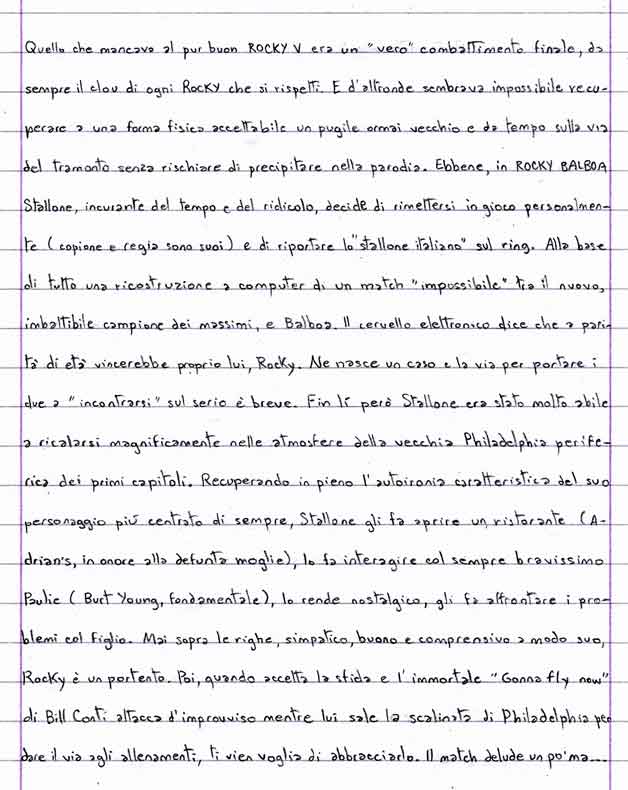 Quello che mancava al pur buon ROCKY V era un "vero" combattimento finale, da
sempre il clou di ogni ROCKY che si rispetti. E d'altronde sembrava impossibile recu-
perare a una forma fisica accettabile un pugile ormai vecchio e da tempo sulla via
del tramonto senza rischiare di precipitare nella parodia. Ebbene, in ROCKY BALBOA
Stallone, incurante del tempo e del ridicolo, decide di rimettersi in gioco personalmen-
te (copione e regia sono suoi) e di riportare lo "stallone italiano" sul ring. Alla base
di tutto una ricostruzione a computer di un match "impossibile" tra il nuovo,
imbattibile campione dei massimi, e Balboa. Il cervello elettronico dice che a pari-
tà di età vincerebbe proprio lui, Rocky. Ne nasce un caso e la via per portare i
due a "incontrarsi" sul serio è breve. Fin lì però Stallone era stato molto abile
a ricalarsi magnificamente nelle atmosfere della vecchia Philadelphia perife-
rica dei primi capitoli. Recuperando in pieno l'autoironia caratteristica del suo
personaggio più centrato di sempre, Stallone gli fa aprire un ristorante (A-
drian's, in onore alla defunta moglie), lo fa interagire col sempre bravissimo
Paulie (Burt Young, fondamentale), lo rende nostalgico, gli fa affrontare i pro-
blemi col figlio. Mai sopra le righe, simpatico, buono e comprensivo a modo suo,
Rocky è un portento. Poi, quando accetta la sfida e l'immortale "Gonna fly now"
di Bill Conti attacca d'improvviso mentre lui sale la scalinata di Philadelphia per
dare il via agli allenamenti, ti vien voglia di abbracciarlo. Il match delude un po' ma...